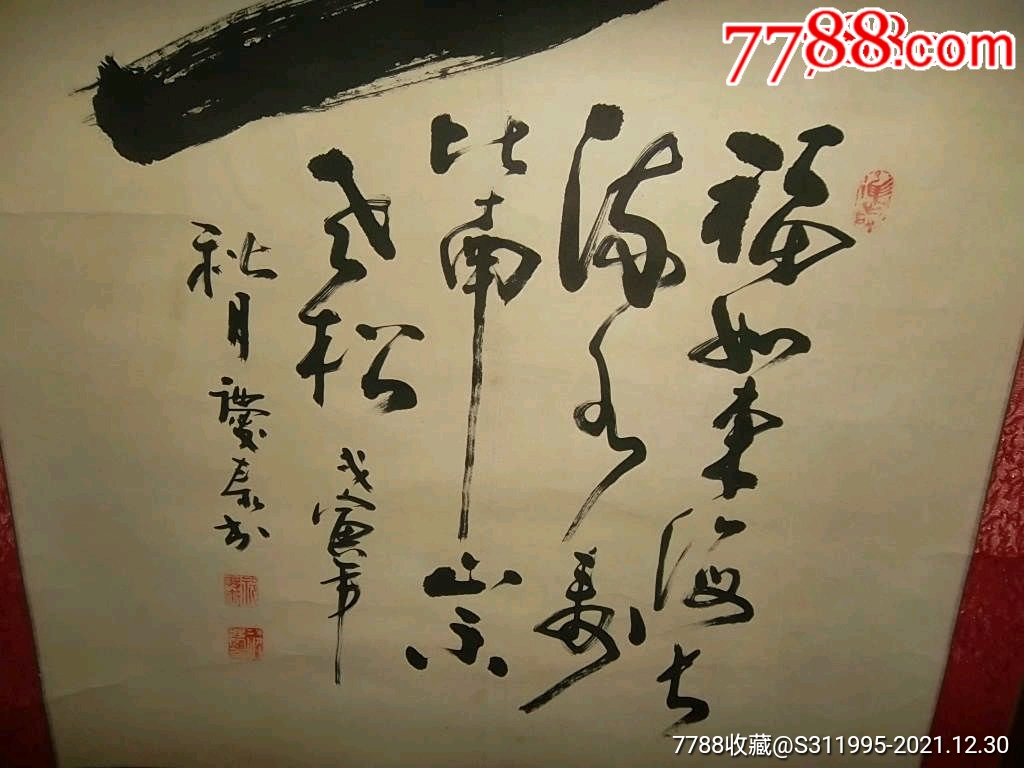 福如东海长
流水寿
比南山不
老松
戊寅年
秋月
7788.com
7788收藏@S311995-2021.12.30